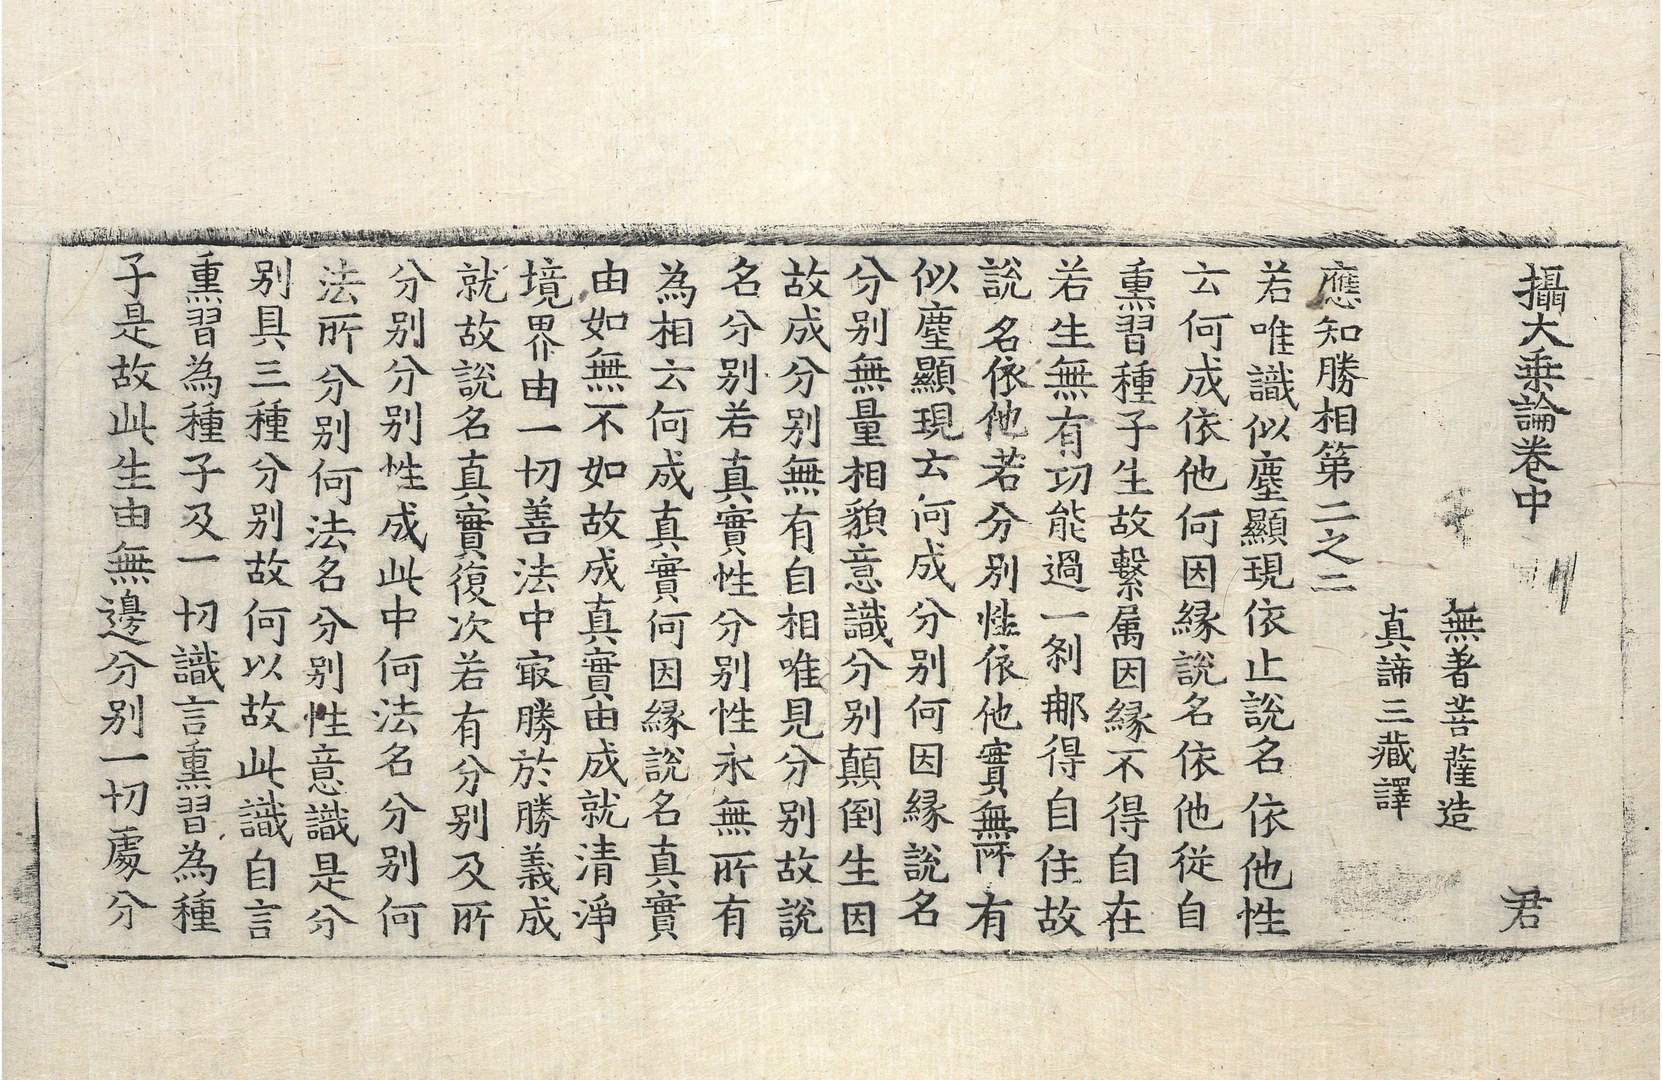 攝大乘論卷中 君
無著菩薩造
真諦三藏譯
應知勝相第二之二
若唯識似塵顯現依止說名依他性
云何成依他何因緣說名依他從自
熏習種子生故繫属因緣不得自在
若生無有功能過一刹那得自住故
說名依他若分別性依他實無所有
似塵顯現云何成分別何因緣說名
分別無量相貌意識分別顛倒生因
故成分別無有自相唯見分別故說
名分別若真實性分別性永無所有
為相云何成真實何因緣說名真實
由如無不如故成真實由成就清淨
境界由一切善法中㝡勝於勝義成
就故說名真實復次若有分別及所
分別分別性成此中何法名分別何
法所分別何法名分別性意識是分
別具三種分別故何以故此識自言
熏習為種子及一切識言熏習為種
子是故此生由無邊分別一切處分